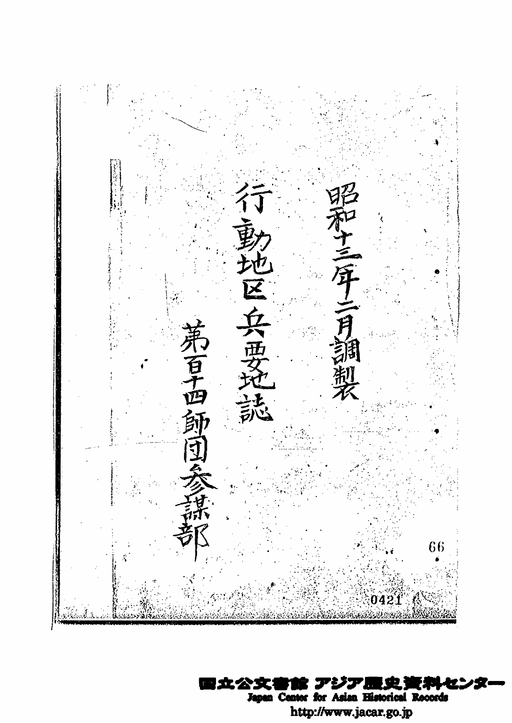 昭和十三年二月調製
行動地区兵要地誌
第百十四師団参謀部
66
0421
国立公文書館 アジア歴史資料センター
Japan Center for Asian Historical Records
http://www.jacar.go.jp